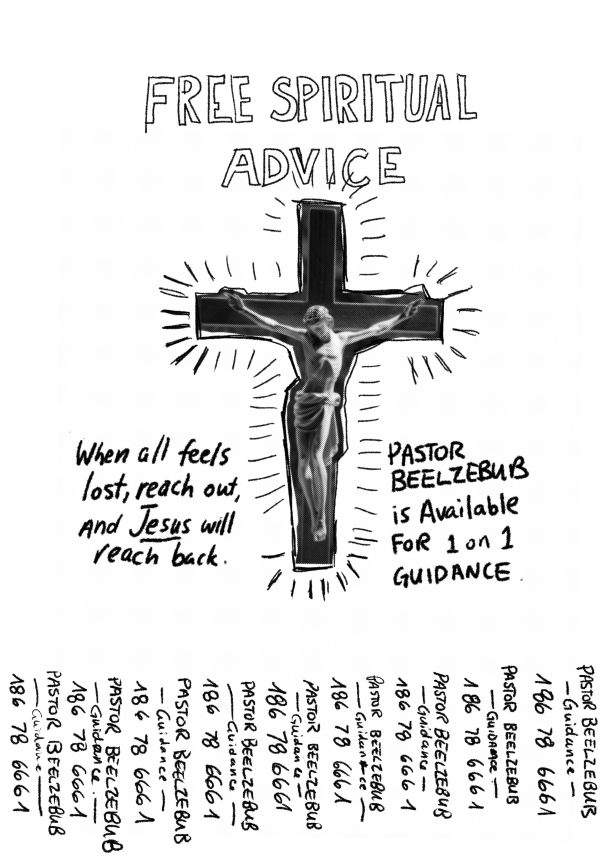 FREE SPIRITUAL
ADVICE
When all feels
lost, reach out,
and Jesus will
reach back.
PASTOR
BEELZEBUB
is Available
FOR 1 on 1
GUIDANCE.
PASTOR BEELZEBUB
— Guidance —
186 78 6661
PASTOR BEELZEBUB
— Guidance —
186 78 6661
PASTOR BEELZEBUB
— Guidance —
186 78 6661
PASTOR BEELZEBUB
— Guidance —
186 78 6661
PASTOR BEELZEBUB
— Guidance —
186 78 6661
PASTOR BEELZEBUB
— Guidance —
186 78 6661
PASTOR BEELZEBUB
— Guidance —
186 78 6661
PASTOR BEELZEBUB
— Guidance —
186 78 6661
PASTOR BEELZEBUB
— Guidance —
186 78 6661